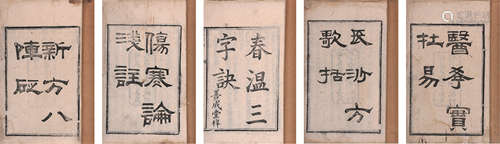 新方八
陣砭
傷寒論
淺註
春溫三
字訣
善成堂梓
長沙方
歌括
醫學實
在易